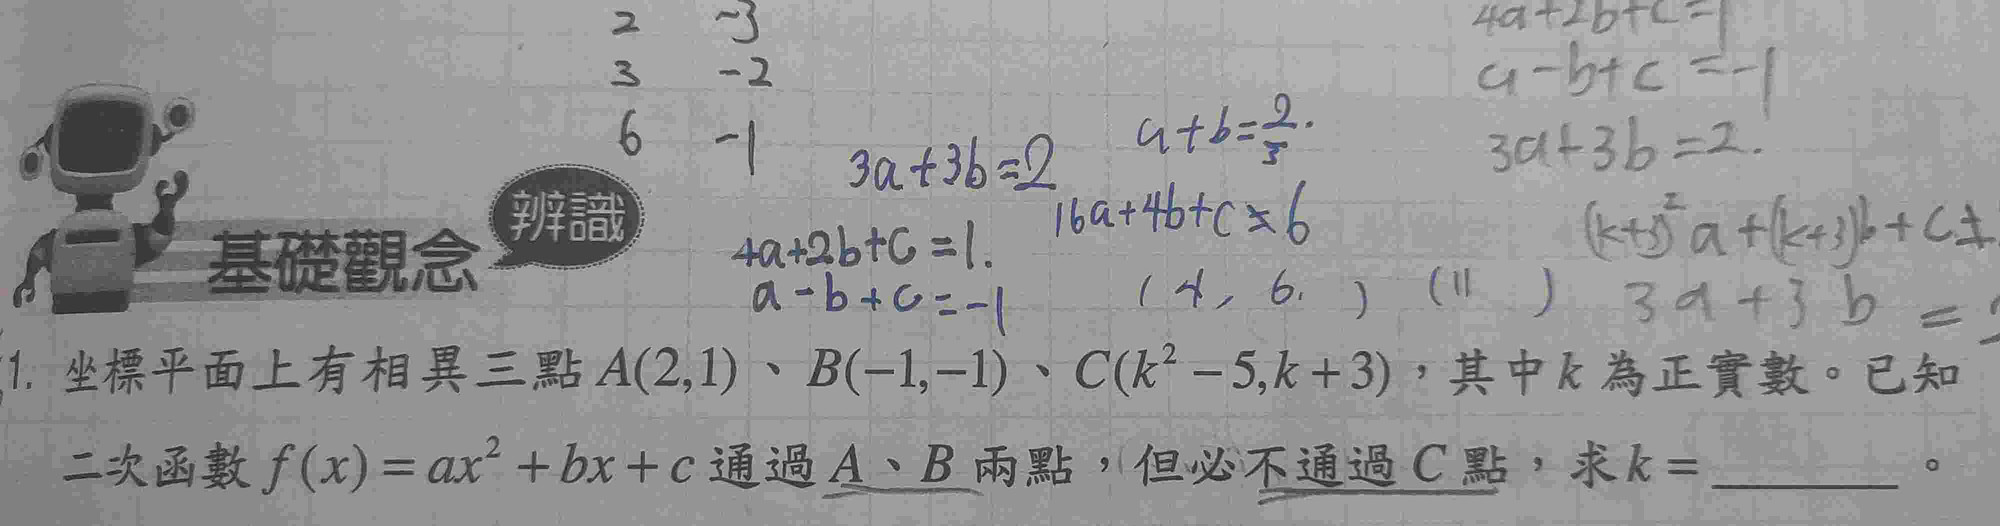 2 -3
3 -2
6 -1
4a+2b+c=1
a-b+c=-1
3a+3b=2.
3a+3b=2
a+b=2/3.
16a+4b+c≠6
4a+2b+c=1.
a-b+c=-1
(4, 6. ) (11 )
3a+3b=
基礎觀念 辨識
1. 坐標平面上有相異三點 A(2,1)、B(-1,-1)、C(k²-5,k+3),其中 k 為正實數。已知
二次函數 f(x)=ax²+bx+c 通過 A、B 兩點,但必不通過 C 點,求 k=________。